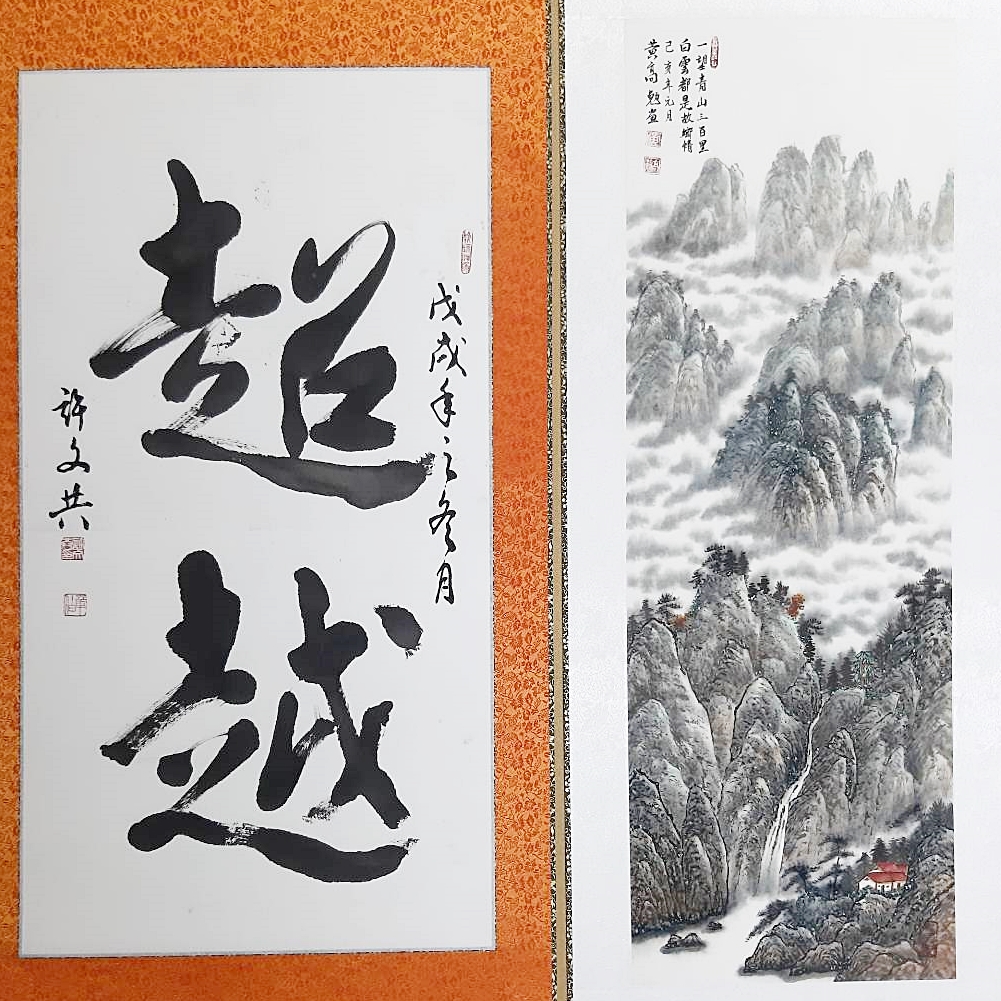 超越
戊戌年之冬月
許文共
一望青山三百里
白雲都是故鄉情
己亥年元月
黃高勉畫